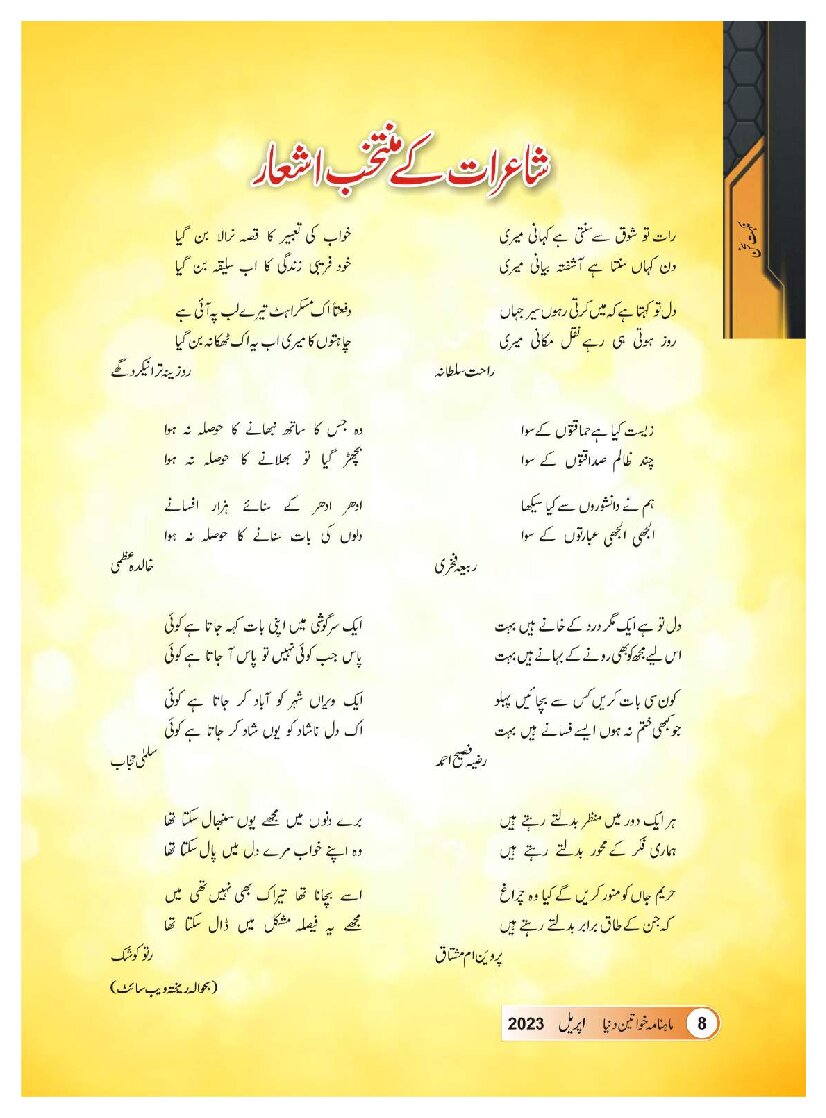 شاعرات کے منتخب اشعار
نکہت سخن
رات تو شوق سے سنتی ہے کہانی میری
دن کہاں سنتا ہے آشفتہ بیانی میری
دل تو کہتا ہے کہ میں کرتی رہوں سیر جہاں
روز ہوتی ہی رہے نقل مکانی میری
راحت سلطانہ
زیست کیا ہے حماقتوں کے سوا
چند ظالم صداقتوں کے سوا
ہم نے دانشوروں سے کیا سیکھا
الجھی الجھی عبارتوں کے سوا
ربیعہ فخری
دل تو ہے ایک مگر درد کے خانے ہیں بہت
اس لیے مجھ کو بھی رونے کے بہانے ہیں بہت
کون سی بات کریں کس سے بچائیں پہلو
جو کبھی ختم نہ ہوں ایسے فسانے ہیں بہت
رضیہ فصیح احمد
ہر ایک دور میں منظر بدلتے رہتے ہیں
ہماری فکر کے محور بدلتے رہتے ہیں
حریم جاں کو منور کریں گے کیا وہ چراغ
کہ جن کے طاق برابر بدلتے رہتے ہیں
پروین ام مشتاق
خواب کی تعبیر کا قصہ نرالا بن گیا
خود فریبی زندگی کا اب سلیقہ بن گیا
دفعتاً اک مسکراہٹ تیرے لب پہ آئی ہے
چاہتوں کا میری اب یہ اک ٹھکانہ بن گیا
روزینہ ترانیکر دگھے
وہ جس کا ساتھ نبھانے کا حوصلہ نہ ہوا
بچھڑ گیا تو بھلانے کا حوصلہ نہ ہوا
ادھر ادھر کے سنائے ہزار افسانے
دلوں کی بات سنانے کا حوصلہ نہ ہوا
خالدہ عظمی
ایک سرگوشی میں اپنی بات کہہ جاتا ہے کوئی
پاس جب کوئی نہیں تو پاس آ جاتا ہے کوئی
ایک ویراں شہر کو آباد کر جاتا ہے کوئی
اک دل ناشاد کو یوں شاد کر جاتا ہے کوئی
سلمیٰ حجاب
برے دنوں میں مجھے یوں سنبھال سکتا تھا
وہ اپنے خواب مرے دل میں پال سکتا تھا
اسے بچانا تھا تیراک بھی نہیں تھی میں
مجھے یہ فیصلہ مشکل میں ڈال سکتا تھا
رنو کوشک
(بحوالہ ریختہ ویب سائٹ)
8 ماہنامہ خواتین دنیا اپریل 2023